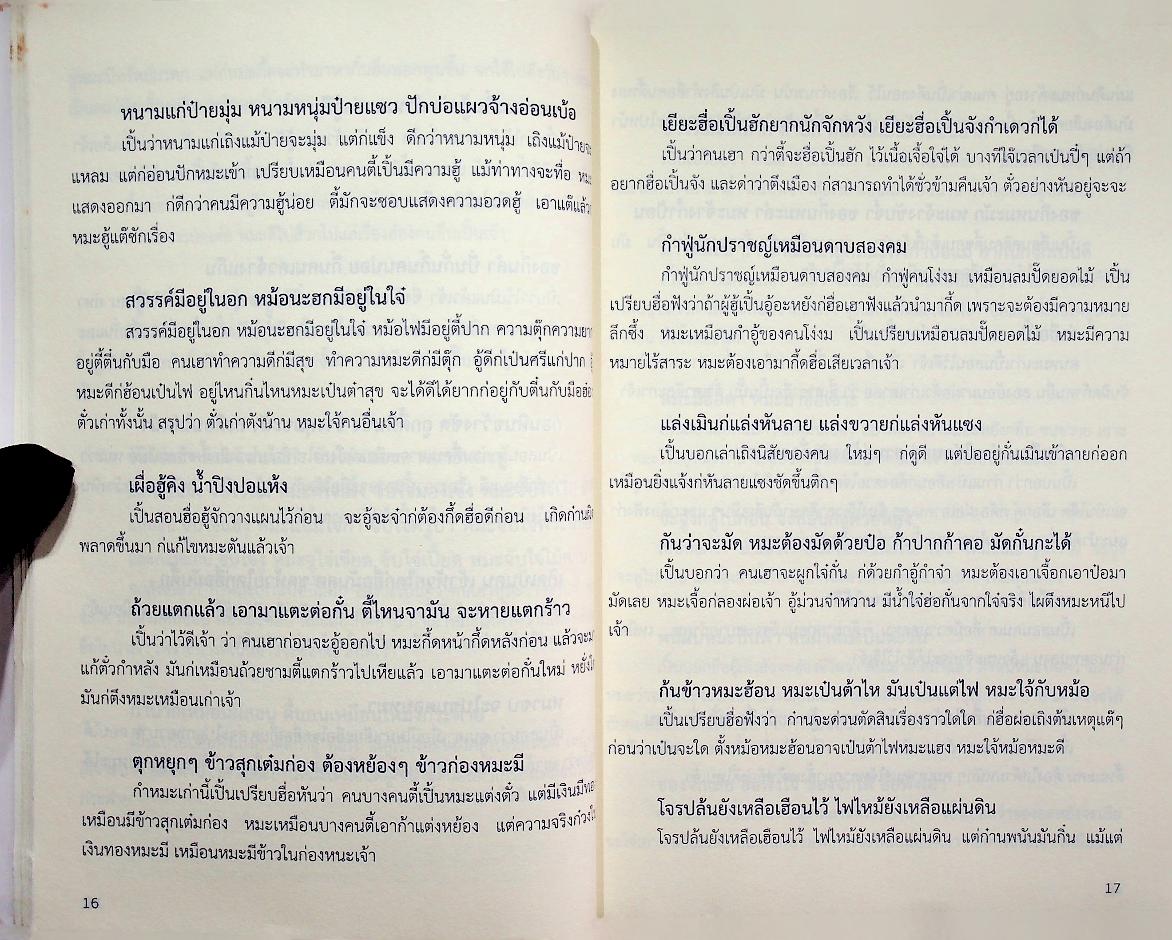 หนามแก่ป๋ายมุ่ม หนามหนุ่มป๋ายแซว ปักบ่อแผวจ้างอ่อนเบ้อ
เปิ้นว่าหนามแก่เถิงแม้ป๋ายจะมุ่ม แต่ก่แข็ง ดีกว่าหนามหนุ่ม เถิงแม้ป๋ายจะ
แหลม แต่ก่อ่อนปักหมะเข้า เปรียบเหมือนคนตี้เปิ้นมีความฮู้ แม้ท่าทางจะทื่อ
แสดงออกมา ก่ดีกว่าคนมีความฮู้น่อย ตี้มักจะชอบแสดงความอวดฮู้ เอาแต๊แล้ว
หมะฮู้แต๊ซักเรื่อง
สวรรค์มีอยู่ในอก หม้อนะฮกมีอยู่ในใจ๋
สวรรค์มีอยู่ในอก หม้อนะฮกมีอยู่ในใจ๋ หม้อไฟมีอยู่ตี้ปาก ความตุ๊กความยาก
อยู่ตี้ตี๋นกับมือ คนเฮาทำความดีก่มีสุข ทำความหมะดีก่มีตุ๊ก อู้ดีก่เป๋นศรีแก่ปาก
หมะดีก่ฮ้อนเป๋นไฟ อยู่ไหนกิ๋นไหนหมะเป๋นต๋ำสุข จะได้ดีได้ยากก่อยู่กับตี๋นกับมือ
ตั๋วเก่าทั้งนั้น สรุปว่า ตั๋วเก่าตังน้าน หมะใจ้คนอื่นเจ้า
เผื่อฮู้คิง น้ำปิงปอแห้ง
เปิ้นสอนฮื่อฮู้จักวางแผนไว้ก่อน จะอู้จะจ๋าก่ต้องกึ้ดฮื่อดีก่อน เกิดก๋านผิด
พลาดขึ้นมา ก่แก้ไขหมะตันแล้วเจ้า
ถ้วยแตกแล้ว เอามาแตะต่อกั๋น ตี้ไหนจามัน จะหายแตกร้าว
เปิ้นว่าไว้ดีเจ้า ว่า คนเฮาก่อนจะอู้ออกไป หมะกึ้ดหน้ากึ้ดหลังก่อน แล้วจะมา
แก้ตั๋วกำหลัง มันก่เหมือนถ้วยชามตี้แตกร้าวไปเหียแล้ว เอามาแตะต่อกั๋นใหม่
มันก่ตึงหมะเหมือนเก่าเจ้า
ตุกหยุกๆ ข้าวสุกเต๋มก่อง ต้องหย้องๆ ข้าวก่องหมะมี
กำหมะเก่านี้เปิ้นเปรียบฮื่อหันว่า คนบางคนตี้เปิ้นหมะแต่งตั๋ว แต่มีเงินมีทอง
เหมือนมีข้าวสุกเต๋มก่อง หมะเหมือนบางคนตี้เอาก้าแต่งหย้อง แต่ความจริงก่วงใน
เงินทองหมะมี เหมือนหมะมีข้าวในก่องหนะเจ้า
16
เยียะฮื่อเปิ้นฮักยากนักจักหวัง เยียะฮื่อเปิ้นจังกำเดวก่ได้
เปิ้นว่าคนเฮา กว่าตี้จะฮื่อเปิ้นฮัก ไว้เนื้อเจื้อใจ๋ได้ บางทีใจ๊เวลาเป๋นปี๋ๆ แต่ถ้า
อยากฮื่อเปิ้นจัง และด่าว่าตึงเมือง ก่สามารถทำได้ชั่วข้ามคืนเจ้า ตั๋วอย่างหันอยู่จะจะ
กำฟู่นักปราชญ์เหมือนดาบสองคม
กำฟู่นักปราชญ์เหมือนดาบสองคม กำฟู่คนโง่งม เหมือนลมปั๊ดยอดไม้ เปิ้น
เปรียบฮื่อฟังว่าถ้าผู้ฮู้เปิ้นอู้อะหยังก่ฮื่อเฮาฟังแล้วนำมากึ้ด เพราะจะต้องมีความหมาย
ลึกซึ้ง หมะเหมือนกำอู้ของคนโง่งม เปิ้นเปรียบเหมือนลมปั๊ดยอดไม้ หมะมีความ
หมายไร้สาระ หมะต้องเอามากึ้ดฮื่อเสียเวลาเจ้า
แล่งเมินก่แล่งหันลาย แล่งขวายก่แล่งหันแซง
เปิ้นบอกเล่าเถิงนิสัยของคน ใหม่ๆ ก่ดูดี แต่ปออยู่กั๋นเมินเข้าลายก่ออก
เหมือนยิ่งแจ้งก่หันลายแซงชัดขึ้นติกๆ
กันว่าจะมัด หมะต้องมัดด้วยป๋อ ก้าปากก้าคอ มัดกั๋นกะได้
เปิ้นบอกว่า คนเฮาจะผูกใจ๋กั๋น ก่ด้วยกำอู้กำจ๋า หมะต้องเอาเจื้อกเอาป๋อมา
มัดเลย หมะเจื้อก่ลองผ่อเจ้า อู้ม่วนจ๋าหวาน มีน้ำใจ๋ฮ่อกั๋นจากใจ๋จริง ไผตึงหมะหนีไป
เจ้า
ก้นข้าวหมะฮ้อน หมะเป๋นต้าไห มันเป๋นแต่ไฟ หมะใจ้กับหม้อ
เปิ้นเปรียบฮื่อฟังว่า ก๋านจะด่วนตัดสินเรื่องราวใดใด ก่ฮื่อผ่อเถิงต้นเหตุแต๊ๆ
ก่อนว่าเป๋นจะใด ตั้งหม้อหมะฮ้อนอาจเป๋นต้าไฟหมะแฮง หมะใจ้หม้อหมะดี
โจรปล้นยังเหลือเฮือนไว้ ไฟไหม้ยังเหลือแผ่นดิน
โจรปล้นยังเหลือเฮือนไว้ ไฟไหม้ยังเหลือแผ่นดิน แต่ก๋านพนันมันกิ๋น แม้แต่
17